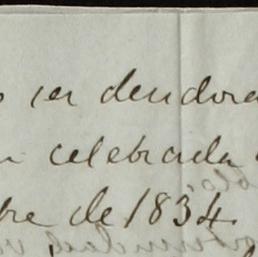 ser deudora
celebrada
bre de 1834.